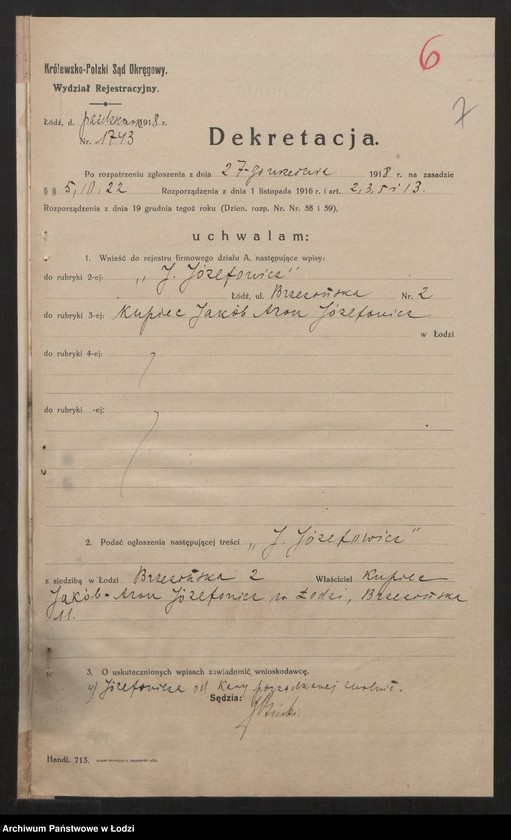 6
7
Królewsko-Polski Sąd Okręgowy.
Wydział Rejestracyjny.
Łódź, d. październ 1918 r.
Nr. 1743
Dekretacja.
Po rozpatrzeniu zgłoszenia z dnia 27 1918 r. na zasadzie
§ § 5, 10, 22 Rozporządzenia z dnia 1 listopada 1916 r. i art. 2, 3, 5 i 13.
Rozporządzenia z dnia 19 grudnia tegoż roku (Dzien. rozp. Nr. Nr. 58 i 59),
uchwalam:
1. Wnieść do rejestru firmowego działu A, następujące wpisy:
do rubryki 2-ej: „J. Józefowicz"
Łódź, ul. Brzezińska Nr. 2
do rubryki 3-ej: Kupiec Jakób Aron Józefowicz
w Łodzi
do rubryki 4-ej:
do rubryki -ej:
2. Podać ogłoszenia następującej treści „J. Józefowicz"
z siedzibą w Łodzi Brzezińska 2 Właściciel Kupiec
Jakób-Aron Józefowicz w Łodzi, Brzezińska
11.
3. O uskutecznionych wpisach zawiadomić wnioskodawcę.
4) Józefowicza od kary porządkowej zwolnić.
Sędzia:
Handl. 713.
Archiwum Państwowe w Łodzi